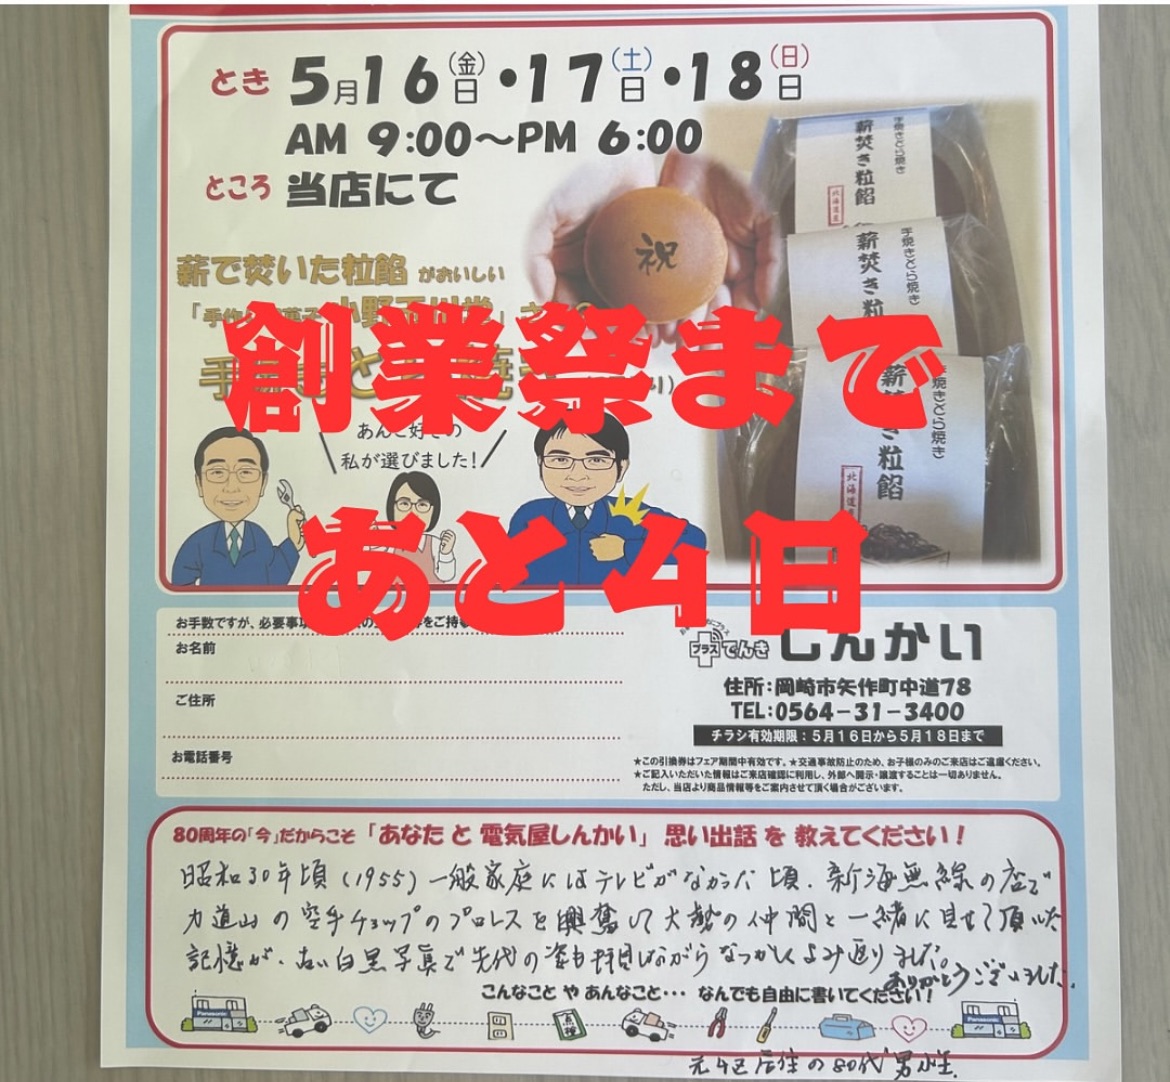 とき 5月16日(金)・17日(土)・18日(日)
AM 9:00〜PM 6:00
ところ 当店にて
薪で焚いた粒餡 がおいしい
祝
手焼きどら焼き
薪焚き粒餡
北海道産
手焼きどら焼き
薪焚き粒
手焼きどら焼き
薪焚き粒餡
北海道
創業祭まで
あと4日
あんこ好きの
私が選びました!
お手数ですが、必要事
をご持
お名前
ご住所
お電話番号
プラス でんき しんかい
住所:岡崎市矢作町中道78
TEL:0564-31-3400
チラシ有効期限:5月16日から5月18日まで
★この引換券はフェア期間中有効です。★交通事故防止のため、お子様のみのご来店はご遠慮ください。
★ご記入いただいた情報はご来店確認に利用し、外部へ開示・譲渡することは一切ありません。
ただし、当店より商品情報等をご案内させて頂く場合がございます。
80周年の「今」だからこそ 「あなた と 電気屋しんかい」 思い出話 を 教えてください!
昭和30年頃(1955)一般家庭にはテレビがなかった頃、新海無線の店で
力道山の空手チョップのプロレスを興奮して大勢の仲間と一緒に見せて頂いた
記憶が、古い白黒写真で先代の姿も拝見しながらなつかしくよみ返りました。
ありがとうございました。
こんなこと や あんなこと・・・ なんでも自由に書いてください!
Panasonic
点検
Panasonic
元4区居住の80代男性